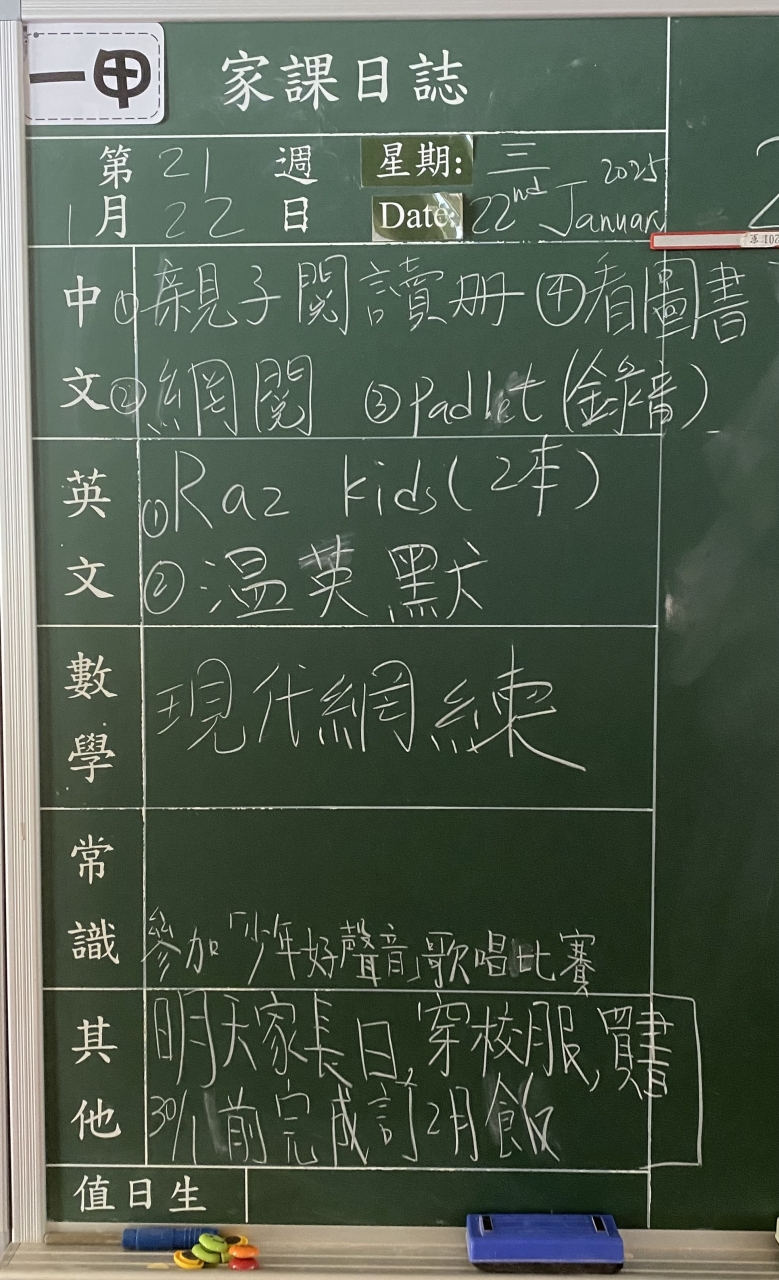 一甲
家課日誌
第 21 週 星期: 三 2025
1 月 22 日 Date: 22nd January
中文
①親子閱讀册 ④看圖書
②網閱 ③padlet(錄音)
英文
①Raz kids(2本)
②溫英默
數學
現代網練
常識
參加「少年好聲音」歌唱比賽
其他
明天家長日,穿校服,買書
30/1前完成訂2月飯
值日生